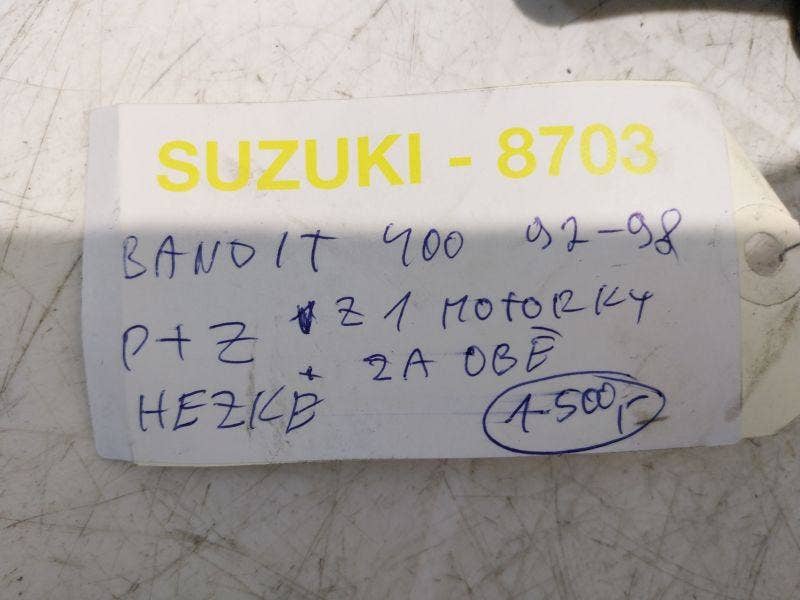 SUZUKI - 8703
BANDIT 400 92-98
P+Z Z 1 MOTORKY
+ ZA OBĚ
HEZKÉ 1.500,-